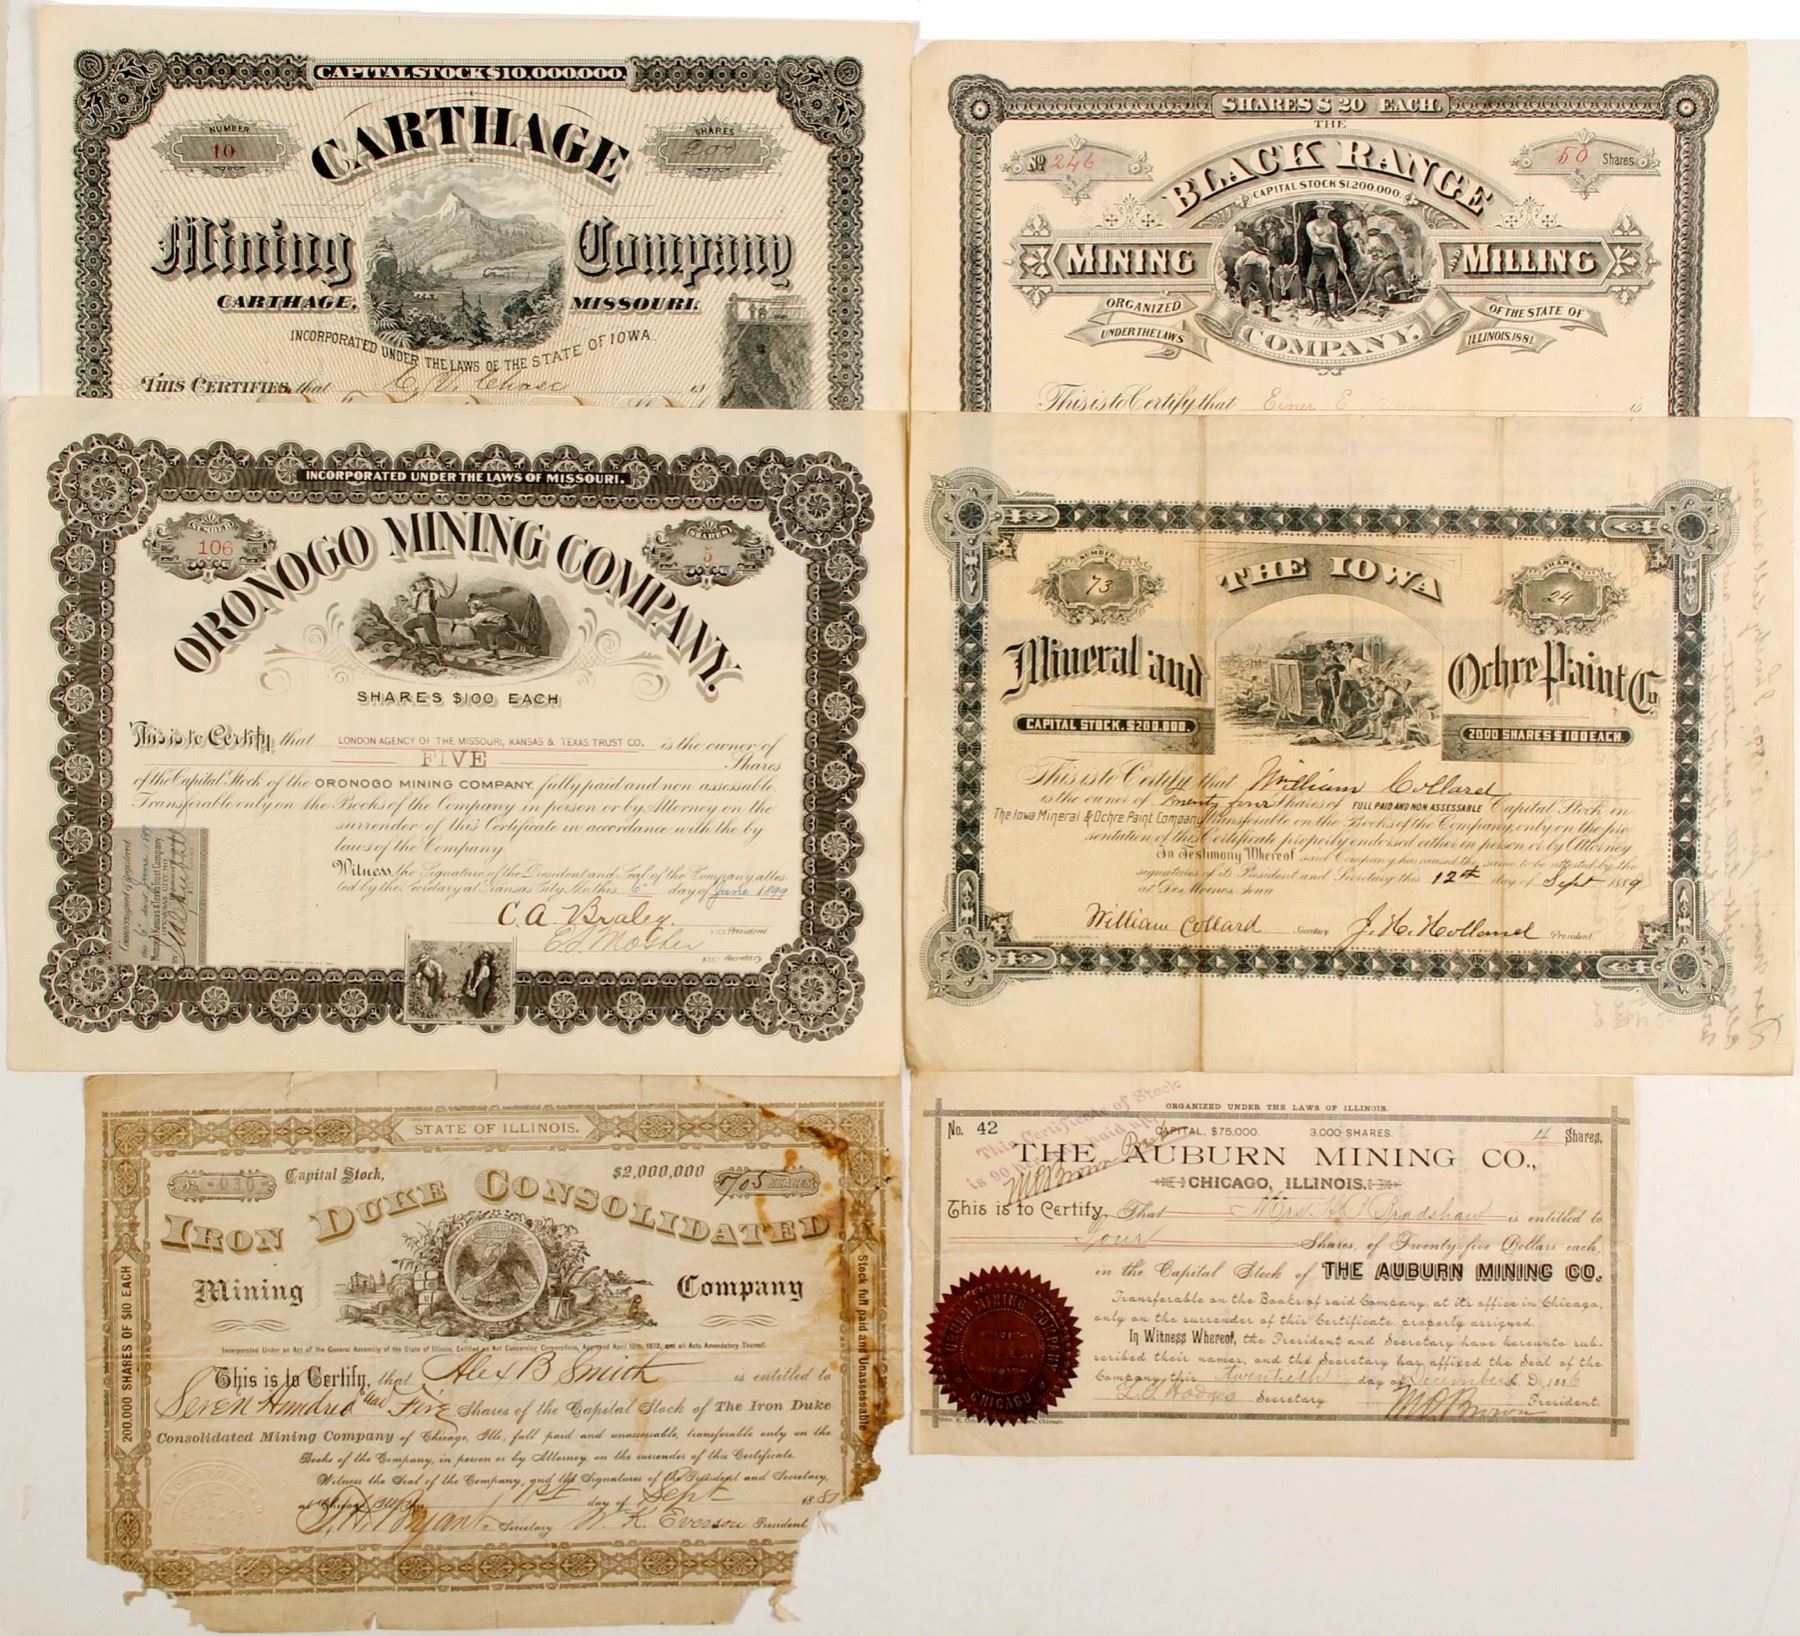 CAPITAL STOCK $10,000,000.
NUMBER
10
SHARES
200
CARTHAGE
Mining Company
CARTHAGE, MISSOURI.
INCORPORATED UNDER THE LAWS OF THE STATE OF IOWA
THIS CERTIFIES that E. V. Chase is
SHARES $20 EACH.
THE
No 246
50 Shares
BLACK RANGE
CAPITAL STOCK $1,200,000.
MINING MILLING
ORGANIZED UNDER THE LAWS
OF THE STATE OF ILLINOIS, 1881.
COMPANY.
This is to Certify that Elmer E. is
INCORPORATED UNDER THE LAWS OF MISSOURI.
NUMBER
106
SHARES
5
ORONOGO MINING COMPANY.
SHARES $100 EACH
This is to Certify that LONDON AGENCY OF THE MISSOURI, KANSAS & TEXAS TRUST CO. is the owner of
FIVE Shares
of the Capital Stock of the ORONOGO MINING COMPANY. fully paid and non assessable.
Transferable only on the Books of the Company in person or by Attorney on the
surrender of this Certificate in accordance with the by
laws of the Company.
Witness, the Signature of the President and Seal of the Company attes-
ted by the Secretary at Kansas City, Mo. this 6" day of June 1899
C. A. Braley.
VICE President
E. L. Mosher
ASST Secretary
Countersigned & registered
this 6" day of June 1899
NUMBER
73
SHARES
24
THE IOWA
Mineral and Ochre Paint Co
CAPITAL STOCK, $200,000.
2000 SHARES $100 EACH.
This is to Certify that William Collard
is the owner of twenty four Shares of FULL PAID AND NON ASSESSABLE Capital Stock in
The Iowa Mineral & Ochre Paint Company transferable on the Books of the Company only on the pre-
sentation of this Certificate properly endorsed either in person or by Attorney
In Testimony Whereof said Company has caused the same to be attested by the
signatures of its President and Secretary this 12th day of Sept 1889
at Des Moines Iowa
William Collard Secretary J. H. Holland President
STATE OF ILLINOIS.
No. 030
Capital Stock, $2,000,000
705 SHARES
IRON DUKE CONSOLIDATED
Mining Company
200,000 SHARES OF $10 EACH
Stock full paid and Unassessable
Incorporated Under an Act of the General Assembly of the State of Illinois, Entitled an Act Concerning Corporations, Approved April 18th, 1872, and all Acts Amendatory Thereof.
This is to Certify, that Alex B Smith is entitled to
Seven Hundred and Five Shares of the Capital Stock of The Iron Duke
Consolidated Mining Company of Chicago, Ills, full paid and unassessable, transferable only on the
Books of the Company, in person or by Attorney, on the surrender of this Certificate.
Witness the Seal of the Company, and the Signatures of the President and Secretary,
at Chicago, 1st day of Sept 188
Bryant. Secretary W. K. Everson President
ORGANIZED UNDER THE LAWS OF ILLINOIS.
No. 42
CAPITAL, $75,000. 3,000 SHARES.
4 Shares.
This Certificate of Stock
is 90 paid up
THE AUBURN MINING CO.,
CHICAGO, ILLINOIS.
This is to Certify, That Mrs. Bradshaw is entitled to
Four Shares, of Twenty-five Dollars each,
in the Capital Stock of THE AUBURN MINING CO.
Transferable on the Books of said Company, at its office in Chicago,
only on the surrender of this Certificate, properly assigned.
In Witness Whereof, the President and Secretary have hereunto sub-
scribed their names, and the Secretary has affixed the Seal of the
Company this Twentieth day of December A. D. 1886
Hodges Secretary M D Brown President.
AUBURN MINING COMPANY
CHICAGO